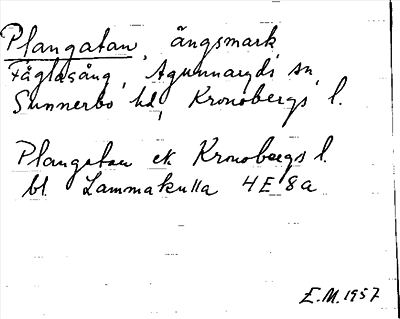 Plangatan, ängsmark,
Fåglasång, Agunnaryds sn,
Sunnerbo hd, Kronobergs l.
Plangatan ek Kronobergs l.
bl. Lammakulla 4E 8a
E.M. 1957